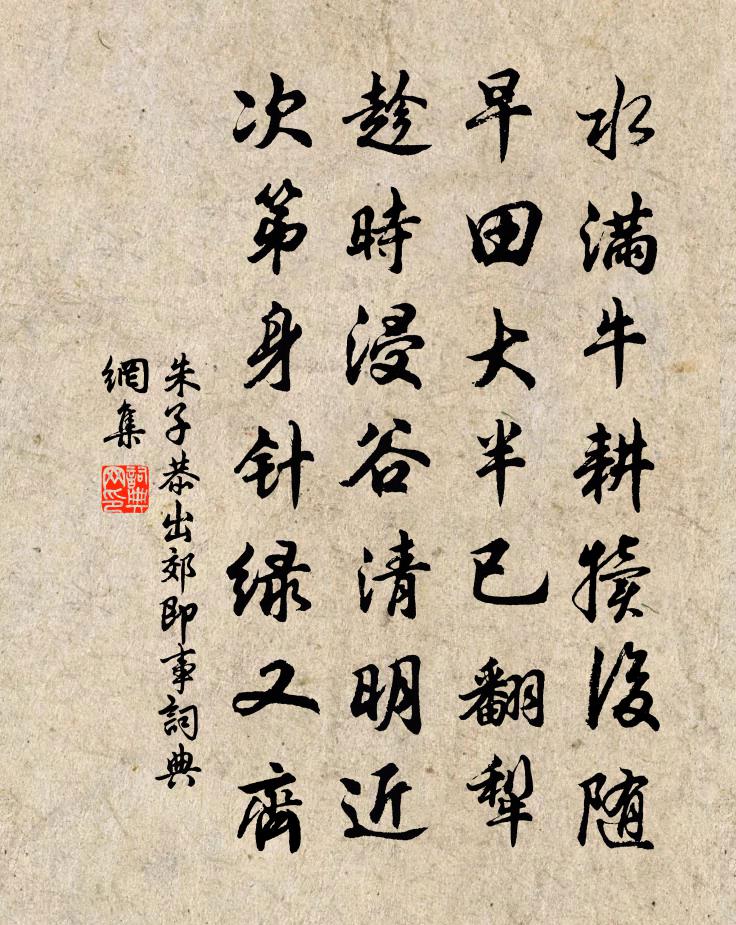 水满牛耕犊後随
早田大半已翻犁
趁時浸谷清明近
次第身针绿又齊
朱子恭出郊即事詞典
網集
詞典
网印